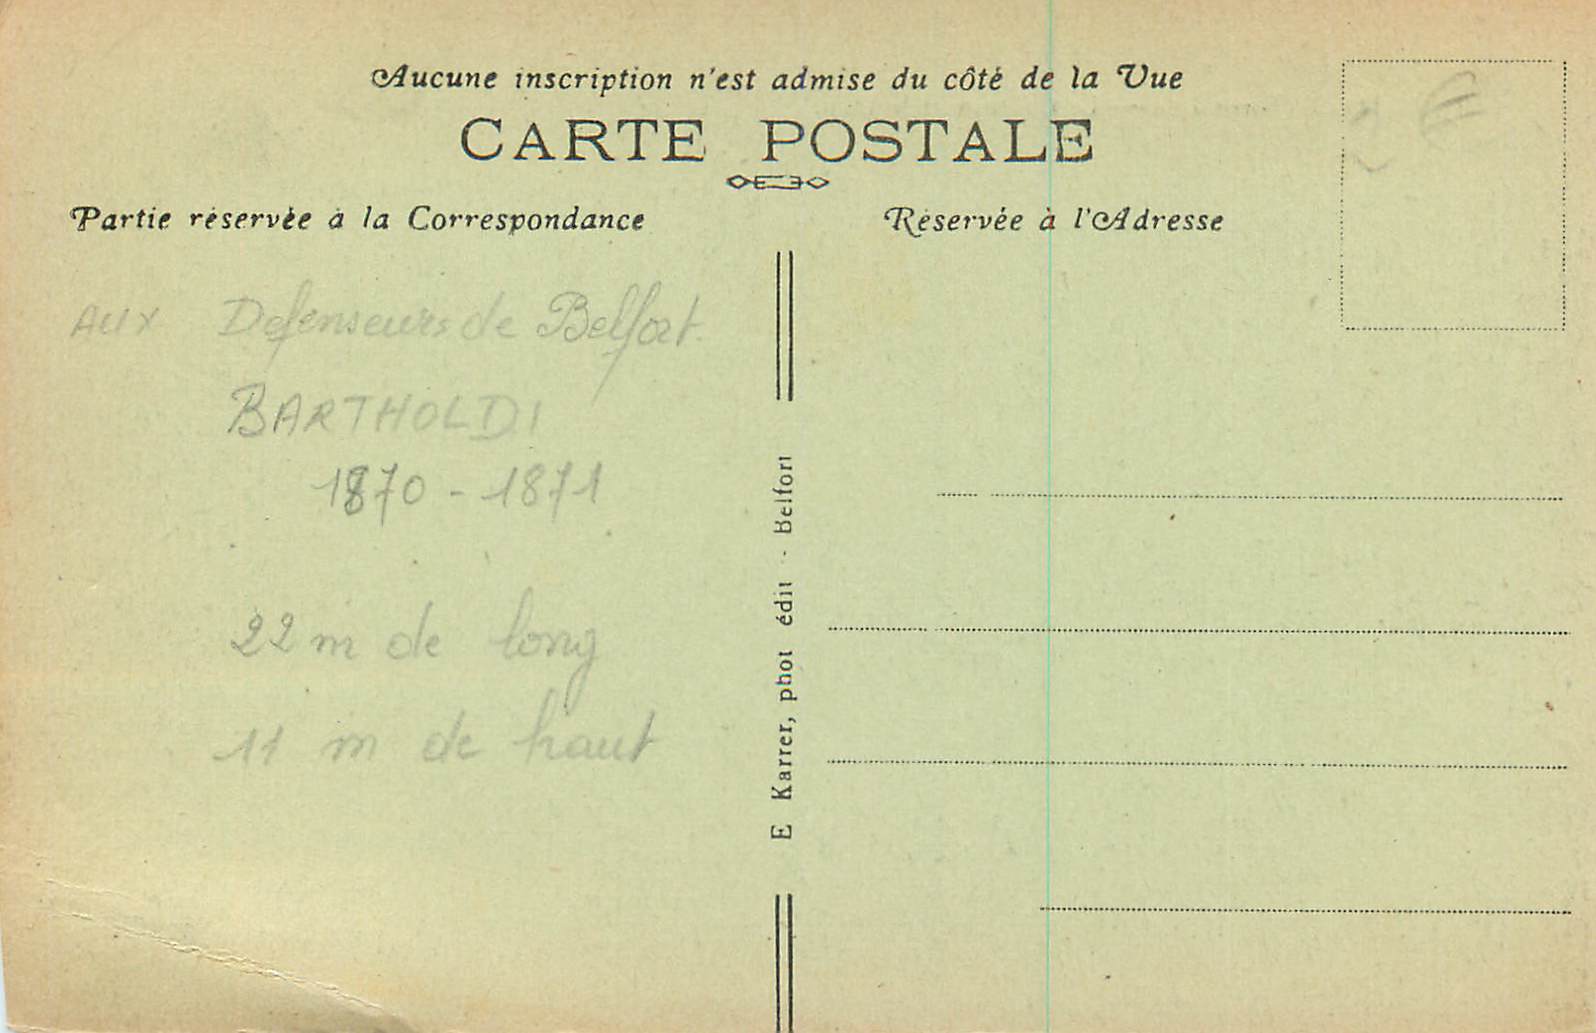 Aucune inscription n'est admise du côté de la Vue
CARTE POSTALE
Partie réservée à la Correspondance
Réservée à l'Adresse
AUX Defenseurs de Belfort.
BARTHOLDI
1870 - 1871
22 m de long
11 m de haut
E Karrer, phot édit - Belfort